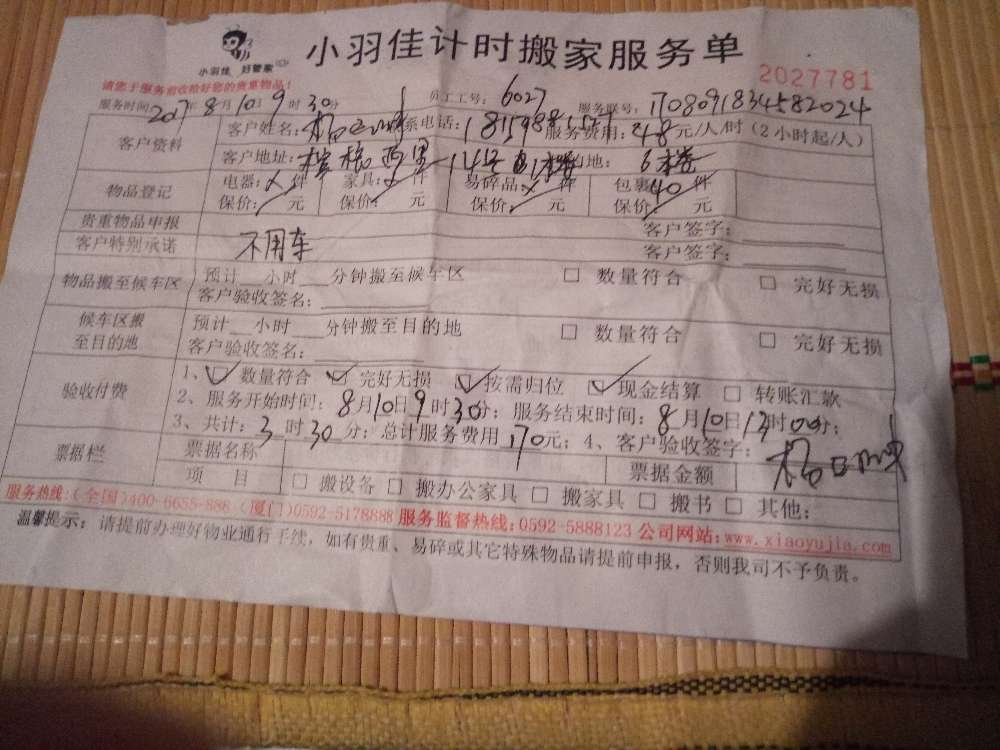 小羽佳 好管家
小羽佳计时搬家服务单
2027781
请您于服务前收拾好您的贵重物品!
服务时间:2017年8月10日9时30分 员工工号:6027 服务联号:1708091834582024
客户资料 客户姓名: 联系电话: 服务费用:48元/人/时(2小时起/人)
客户地址: 目的地:6楼
物品登记 电器:×件 家具:×件 易碎品:×件 包裹:40件
保价: 元 保价: 元 保价: 元 保价: 元
贵重物品申报 客户签字:
客户特别承诺 不用车 客户签字:
物品搬至候车区 预计 小时 分钟搬至候车区 □ 数量符合 □ 完好无损
客户验收签名:
候车区搬至目的地 预计 小时 分钟搬至目的地 □ 数量符合 □ 完好无损
客户验收签名:
验收付费 1、☑ 数量符合 ☑ 完好无损 ☑ 按需归位 ☑ 现金结算 □ 转账汇款
2、服务开始时间:8月10日9时30分;服务结束时间:8月10日13时00分;
3、共计:3时30分;总计服务费用170元;4、客户验收签字:
票据栏 票据名称 票据金额
项 目 □ 搬设备 □ 搬办公家具 □ 搬家具 □ 搬书 □ 其他:
服务热线:(全国)400-6655-886 (厦门)0592-5178888 服务监督热线:0592-5888123 公司网站:www.xiaoyujia.com
温馨提示:请提前办理好物业通行手续,如有贵重、易碎或其它特殊物品请提前申报,否则我司不予负责。